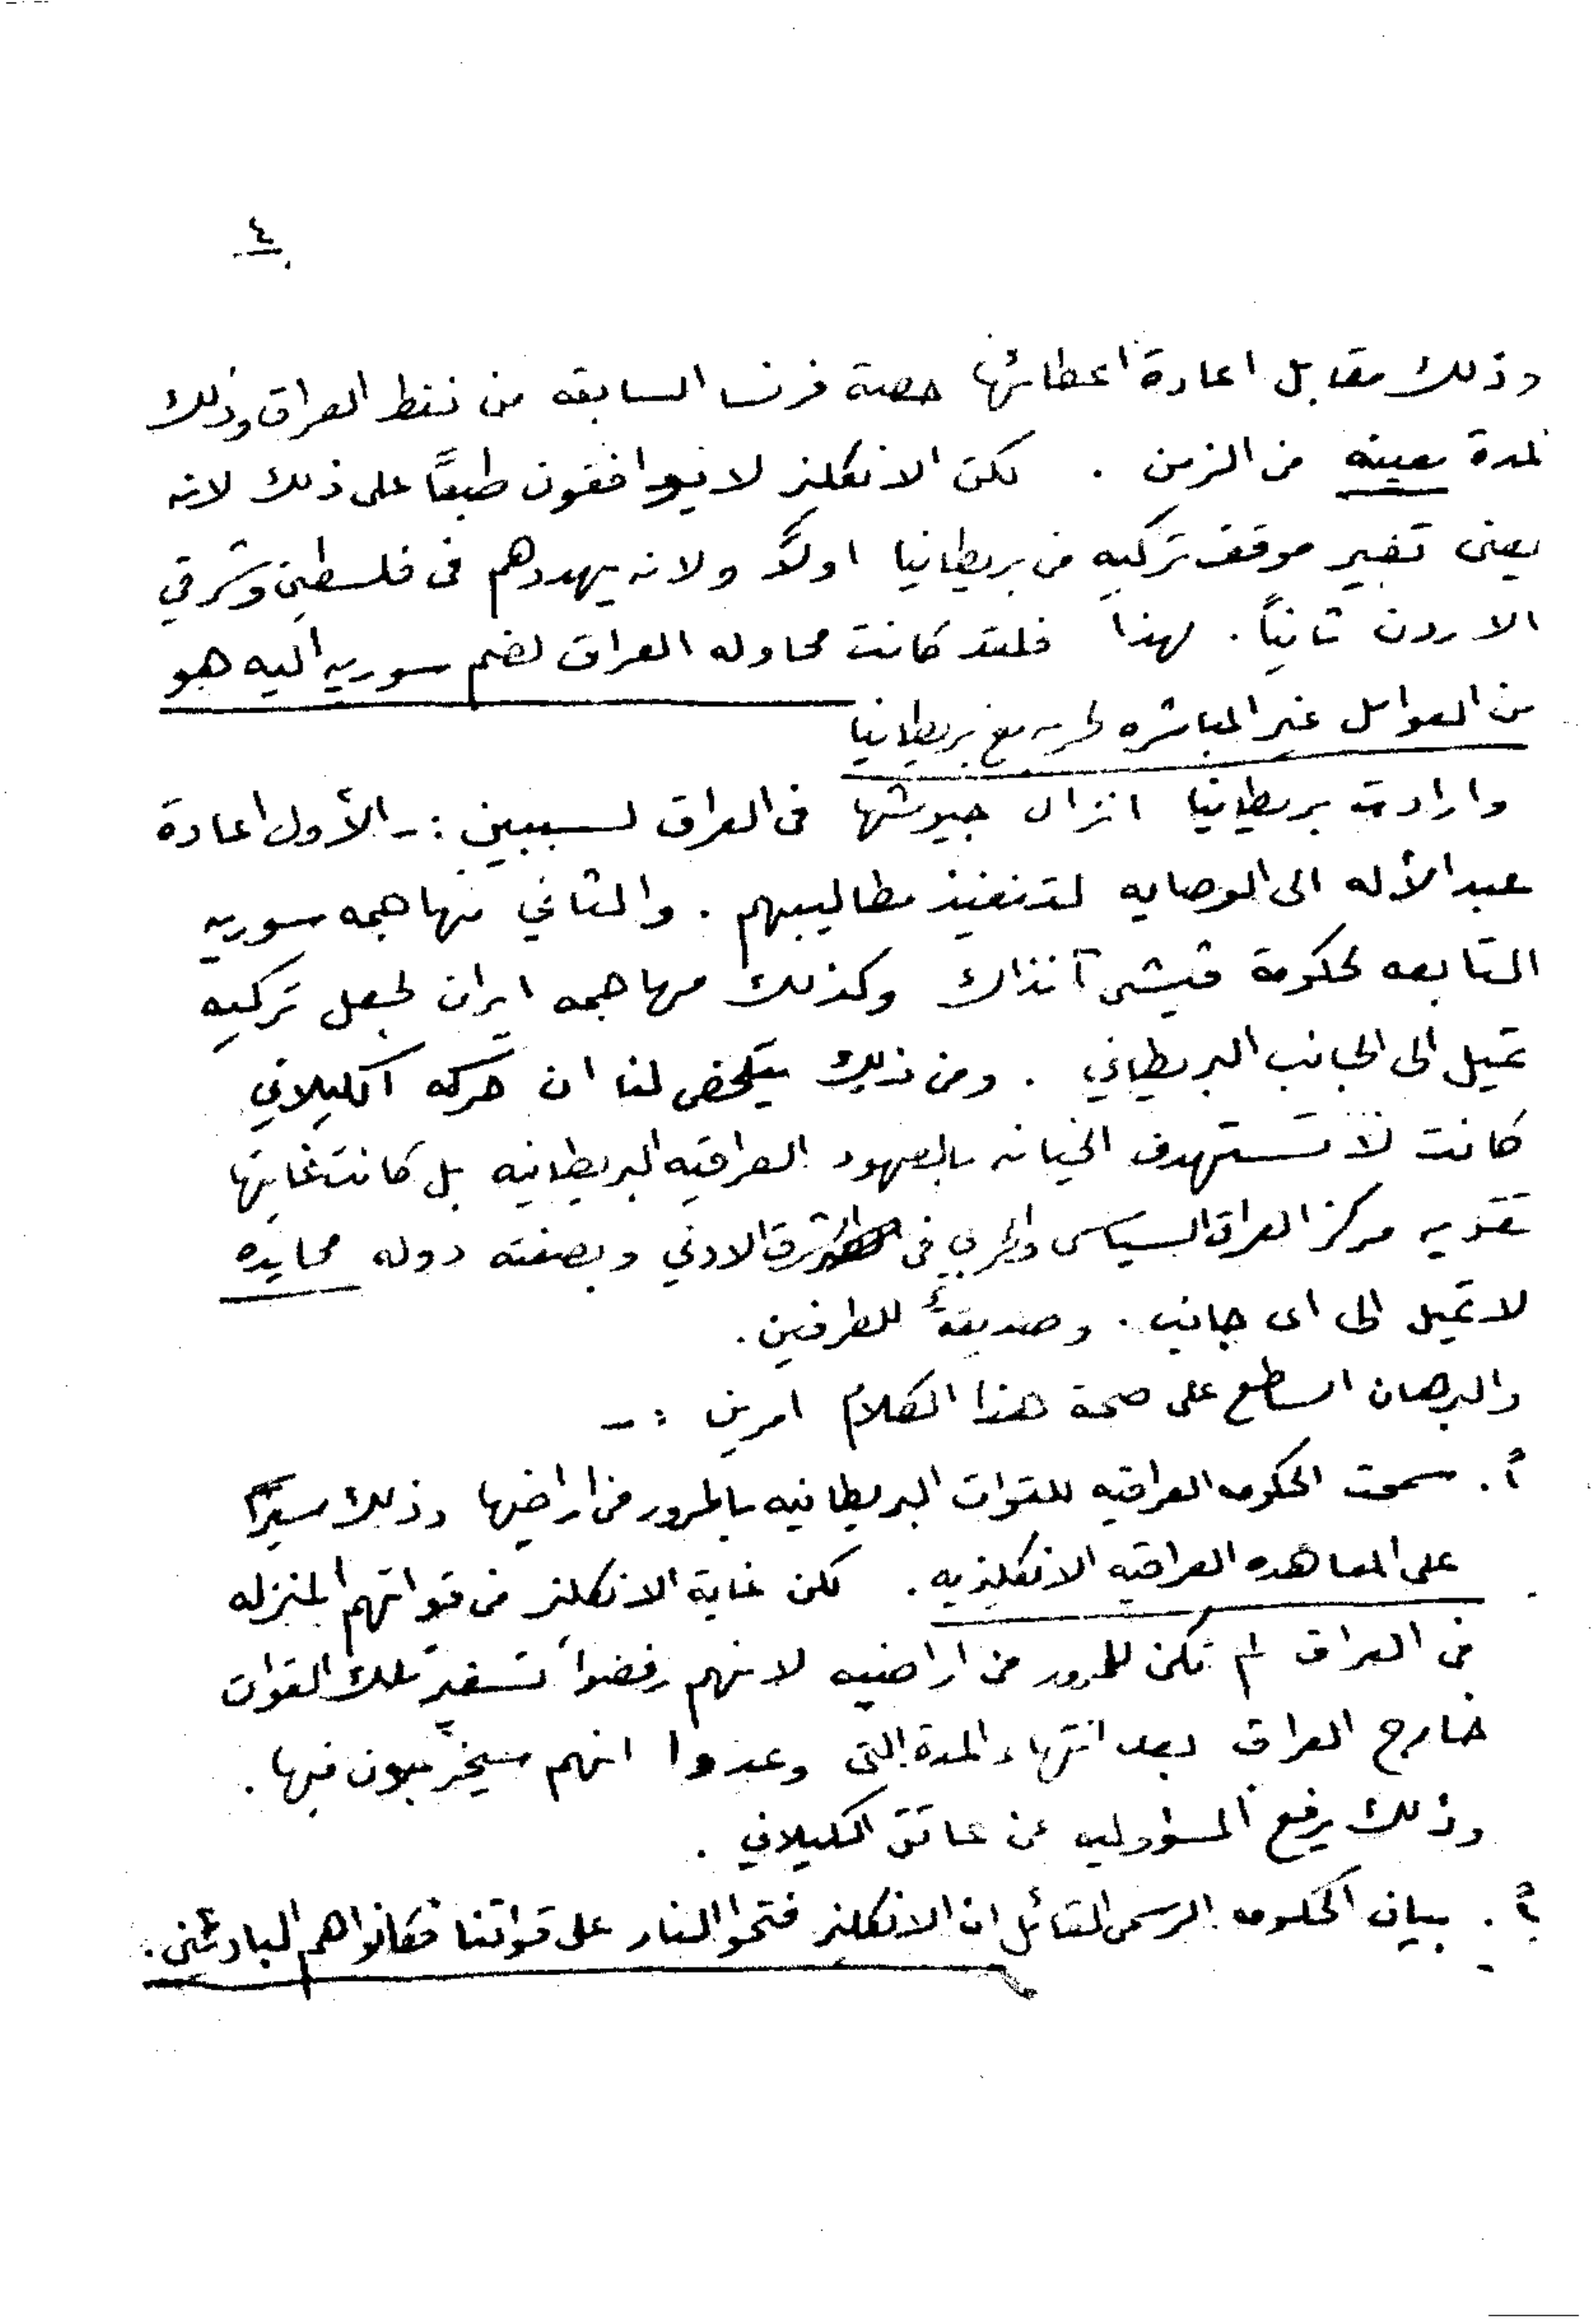 ٤
وذلك مقابل اعادة اعطائها حصة فرنسا السابقه من نفط العراق وذلك
لمدة معينه من الزمن . لكن الانكليز لا يوافقون طبعاً على ذلك لانه
يعنى تغيير موقف تركيه من بريطانيا اولاً ولانه يهددهم فى فلسطين وشرقي
الاردن ثانياً . لهذا فلقد كانت محاوله العراق لضم سوريه اليه هو
من العوامل غير المباشره لحربه مع بريطانيا
وارادت بريطانيا انزال جيوشها فى العراق لسببين :- الأول اعادة
عبد الأله الى الوصايه لتنفيذ مطاليبهم . والثاني مهاجمه سوريه
التابعه لحكومة فيشى آنذاك وكذلك مهاجمه ايران لجعل تركيه
تميل الى الجانب البريطاني . ومن ذلك يتلخص لنا ان حركه الكيلاني
كانت لا تستهدف الخيانه بالعهود العراقيه البريطانيه بل كانت غايتها
تقويه مركز العراق السياسى والحربي فى الشرق الادنى وبصفته دوله محايده
لا تميل الى اى جانب . وصديقة للطرفين .
والبرهان الساطع على صحة هذا الكلام امرين :-
١ً . سمحت الحكومه العراقيه للقوات البريطانيه بالمرور من اراضيها وذلك سيراً
على المعاهده العراقيه الانكليزيه . لكن غاية الانكليز من قواتهم المنزله
فى العراق لم تكن للمرور من اراضيه لانهم رفضوا تسفير تلك القوات
خارج العراق بعد انتهاء المدة التى وعدوا انهم سيخرجون فيها .
وذلك يرفع المسؤوليه عن عاتق الكيلاني .
٢ً . بيان الحكومه الرسمى القائل ان الانكليز فتحوا النار على قواتنا فكانوا هم البادئين .